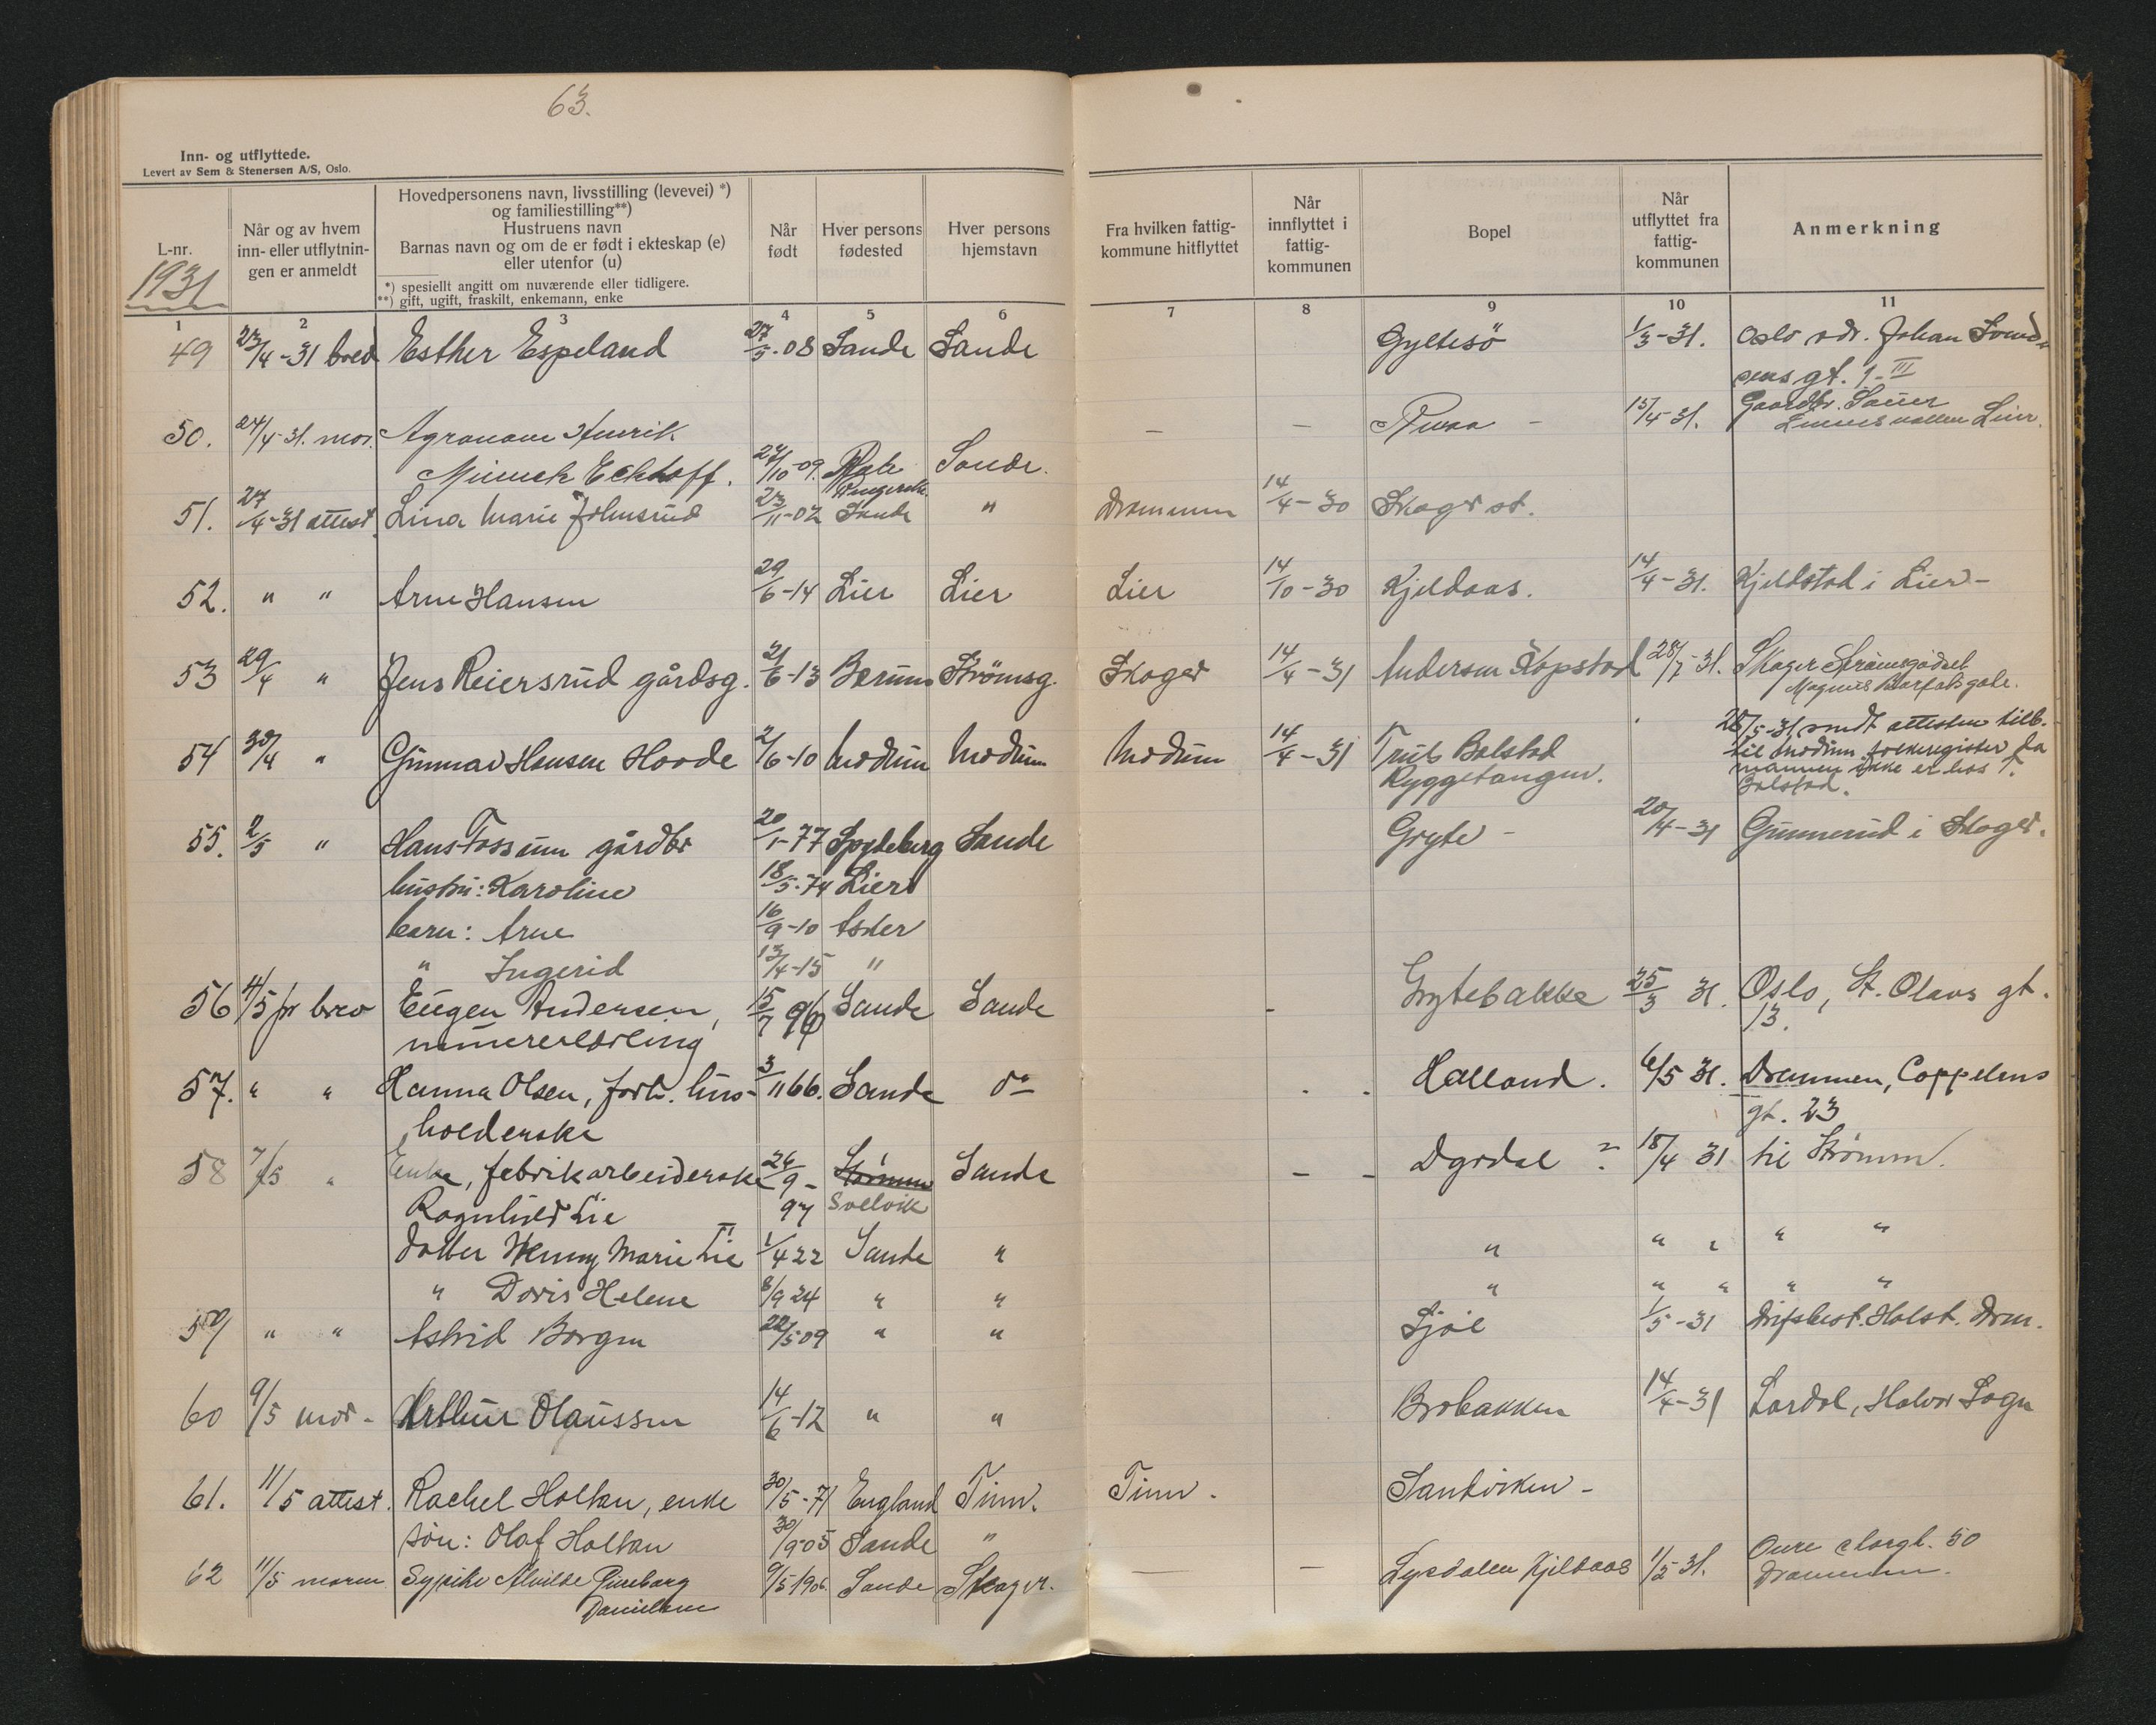 63.
Inn- og utflyttede.
Levert av Sem & Stenersen A/S, Oslo.
L-nr.
1931
Når og av hvem
inn- eller utflytnin-
gen er anmeldt
Hovedpersonens navn, livsstilling (levevei) *)
og familiestilling**)
Hustruens navn
Barnas navn og om de er født i ekteskap (e)
eller utenfor (u)
*) spesiellt angitt om nuværende eller tidligere.
**) gift, ugift, fraskilt, enkemann, enke
Når
født
Hver persons
fødested
Hver persons
hjemstavn
Fra hvilken fattig-
kommune hitflyttet
Når
innflyttet i
fattig-
kommunen
Bopel
Når
utflyttet fra
fattig-
kommunen
Anmerkning
1 2 3 4 5 6 7 8 9 10 11
49 23/4-31 Esther Espeland 27/5-08 Sande Sande Gyltesö 1/3-31. Oslo adr. Johan Svend-
sens gt. 1-III
50. 24/4-31. mor. Agronom Henrik — — Ruaa - 15/4-31. Gaardbr. Sauer
Lier.
Munck Eckhoff. 24/10-09. Sande.
Ringerike
51. 27/4-31 attest. Lina Marie Johnsrud 23/11-02 Sande " Drammen 14/4-30 Skoger st.
52. " " Arne Hansen 29/6-14 Lier Lier Lier 14/10-30 Kjeldaas. 14/4-31. Kjeldstad i Lier-
53 29/4 " Jens Reiersrud gårdsg. 21/6-13 Berum Strömsg. Skoger 14/4-31 Andersen Kopstad 28/7-31. Skoger Strömsgodset
Magnus Barfotsgate.
54 30/4 " Gunnar Hansen Hovde 2/6-10 Modum Modum Modum 14/4-31 Truls Bolstad 28/5-31 sendt attesten tilb.
Ryggetangen. til Modum folkeregister da
mannen ikke er hos T.
Bolstad.
55. 2/5 " Hans Fossum gårdbr 20/1-77 Spydeberg Sande Gryte - 20/4-31 Gunnerud i Skoger.
hustru: Karoline 18/5-74 Lier
barn: Arne 16/9-10 Asker
" Ingerid 13/4-15 "
56 4/5 pr brev Eugen Andersen, 15/7 96 Sande Sande - Grytebakke 25/3 31. Oslo, St. Olavs gt.
murerlærling 13.
57. " " Hanna Olsen, forh. hus- 3/11 66. Sande do Halland. 6/5 31. Drammen, Coppelens
holderske gt. 23
58 7/5 " Enke, fabrikarbeiderske 26/9- Strömm Sande - - Dgrdal ? 18/4 31 til Strömm.
Ragnhild Lie 97 Svelvik
datter Henny Marie Lie 1/4 22 Sande " " " " " "
" Doris Helene 8/9 24 " " " " " " "
59 " " Astrid Borgen 22/5 09 " " Sjöl 1/5-31 Drifsbest. Holst. Drm.
60 9/5 mor- Arthur Olaussen 14/6-12 " " Brobakken 14/4-31 Lardal, Halvor Sogn
61. 11/5 attest. Rachel Holtan, enke 30/5-71 England Tinn. Tinn. Sandviken -
sön: Olaf Holtan 30/9-05 Sande "
62 11/5 moren Sypike Alvilde Gineborg 9/5 1906. Sande Skoger. — — Lysdalen Kjeldaas 1/5 31. Övre Storgt. 50
Danielsen Drammen.